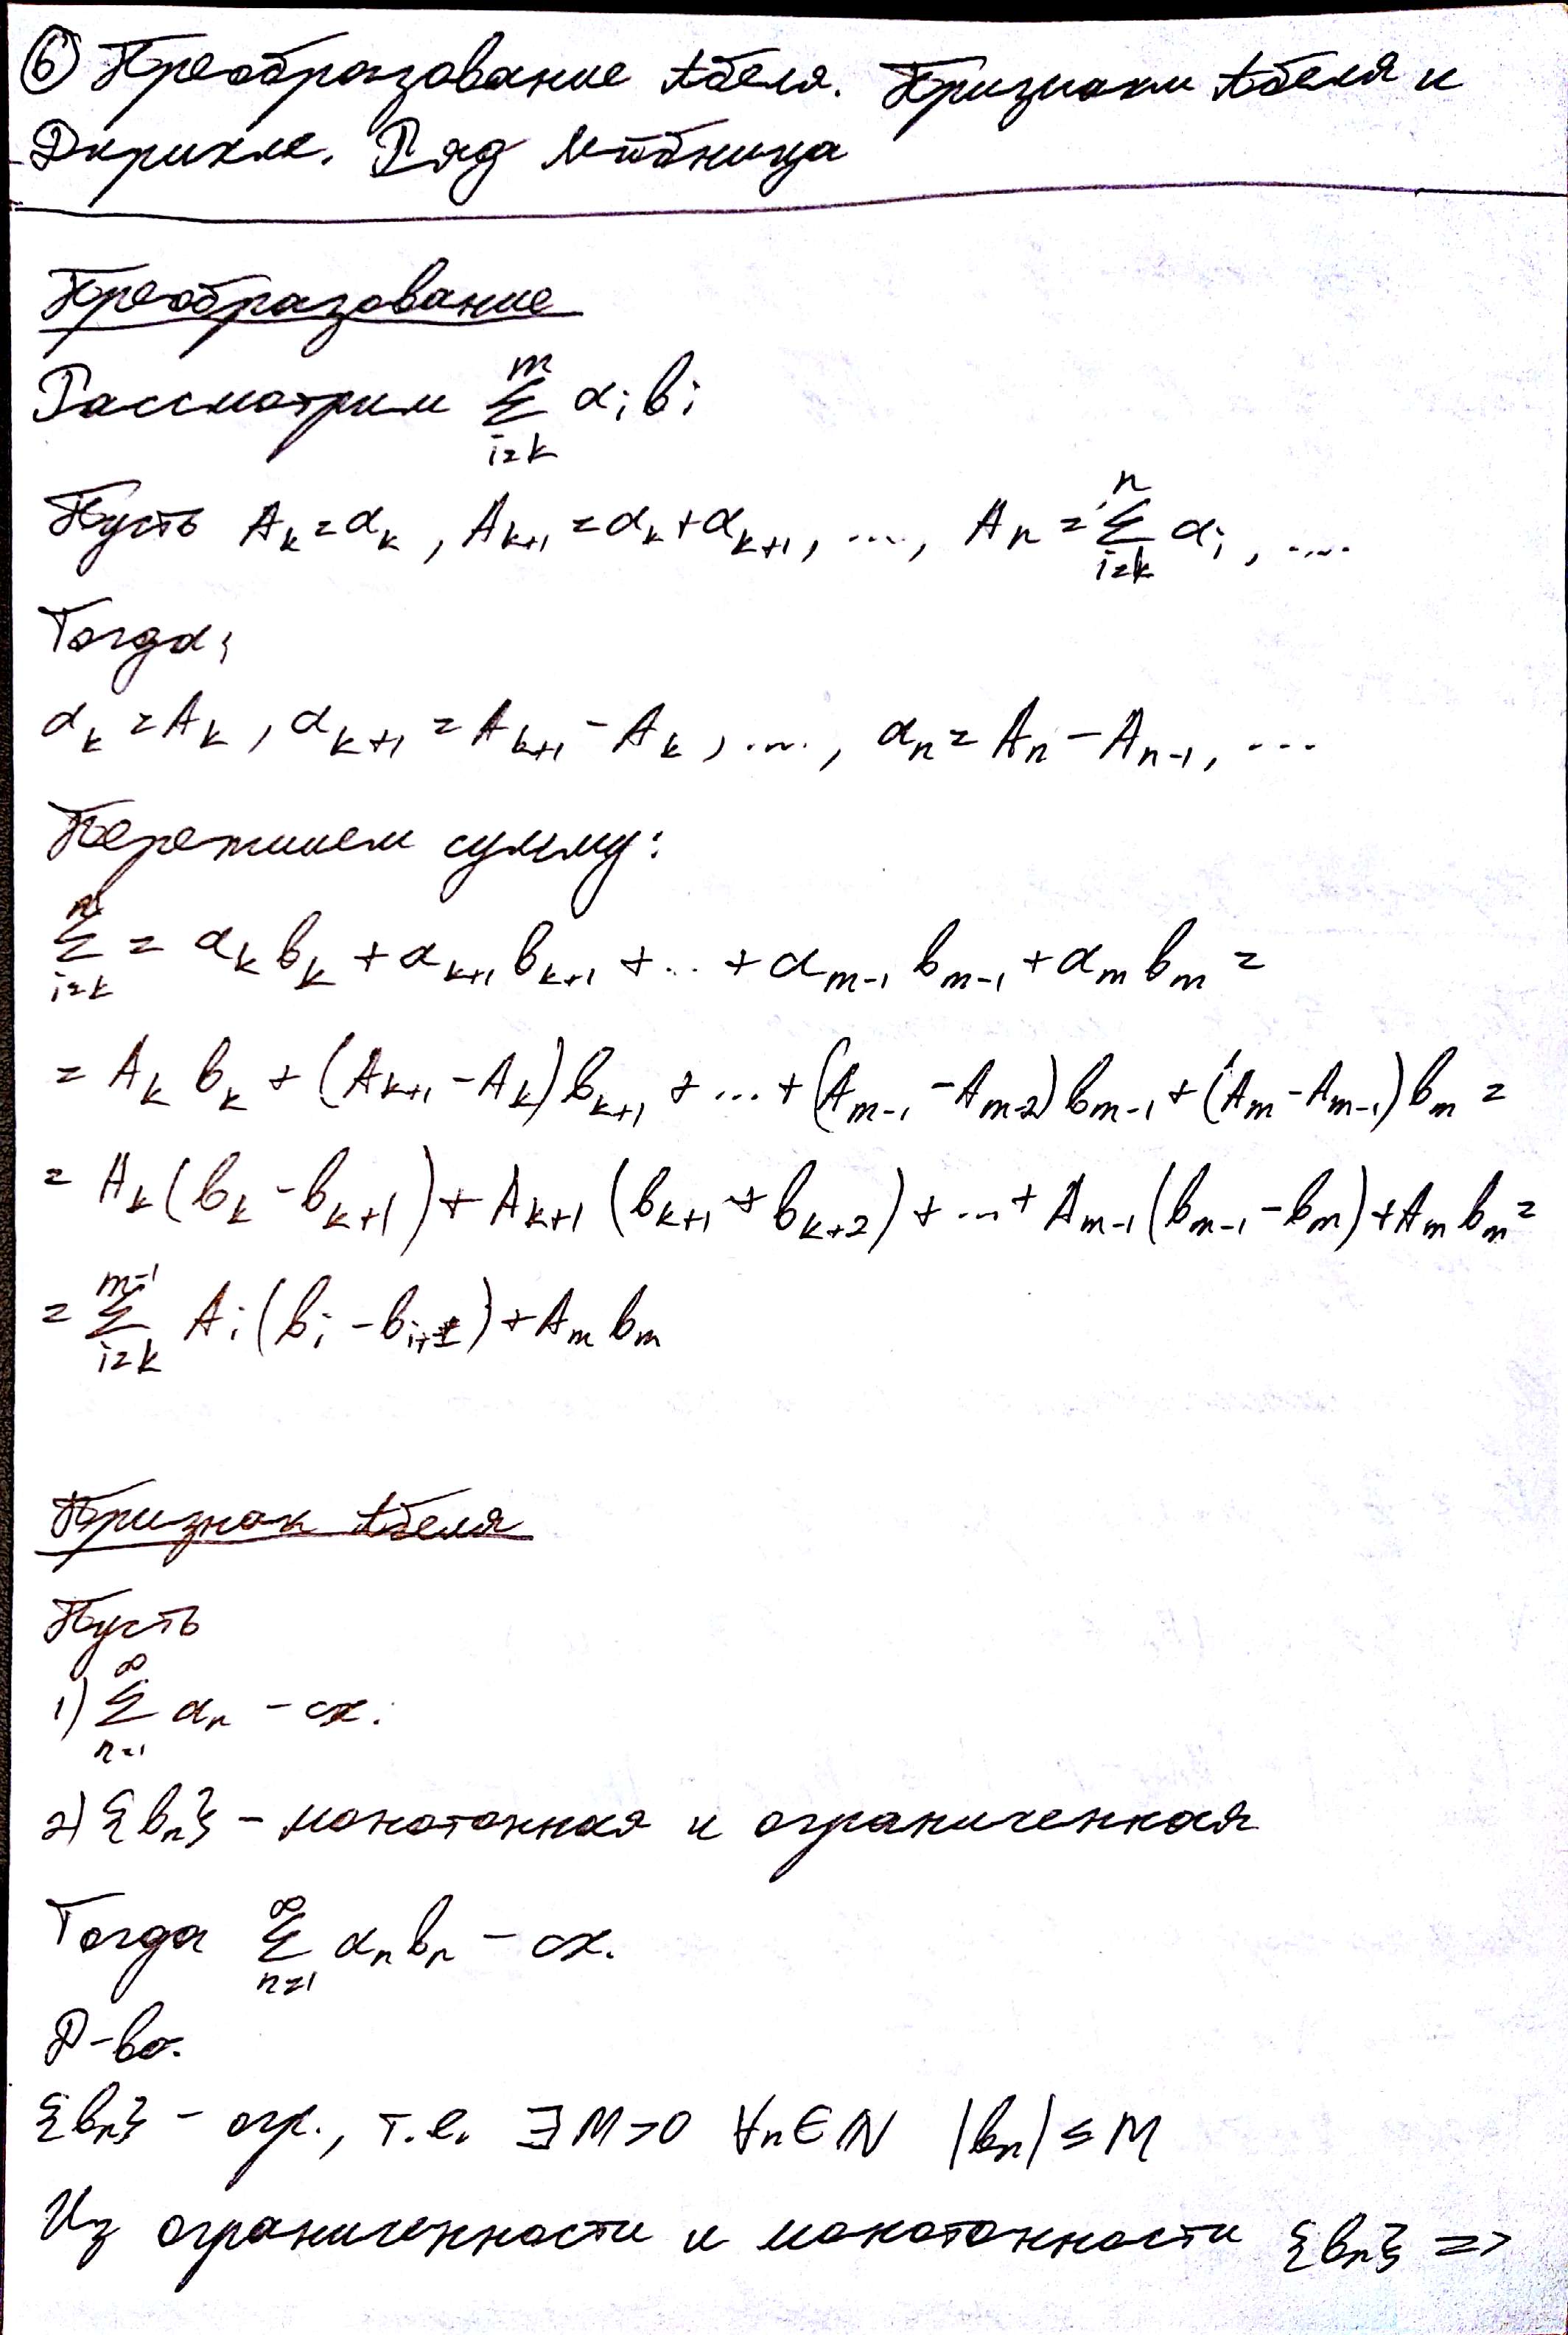 ⑥ Преобразование Абеля. Признаки Абеля и
Дирихле. Ряд Лейбница
Преобразование
Рассмотрим \sum_{i=k}^{m} a_i b_i
Пусть A_k = a_k, A_{k+1} = a_k + a_{k+1}, ..., A_n = \sum_{i=k}^{n} a_i, ....
Тогда:
a_k = A_k, a_{k+1} = A_{k+1} - A_k, ..., a_n = A_n - A_{n-1}, ...
Перепишем сумму:
\sum_{i=k}^{n} = a_k b_k + a_{k+1} b_{k+1} + ... + a_{m-1} b_{m-1} + a_m b_m =
= A_k b_k + (A_{k+1} - A_k) b_{k+1} + ... + (A_{m-1} - A_{m-2}) b_{m-1} + (A_m - A_{m-1}) b_m =
= A_k (b_k - b_{k+1}) + A_{k+1} (b_{k+1} + b_{k+2}) + ... + A_{m-1} (b_{m-1} - b_m) + A_m b_m =
= \sum_{i=k}^{m-1} A_i (b_i - b_{i+1}) + A_m b_m
Признак Абеля
Пусть
1) \sum_{n=1}^{∞} a_n - сх.
2) {b_n} - монотонная и ограниченная
Тогда \sum_{n=1}^{∞} a_n b_n - сх.
Д-во.
{b_n} - огр., т.е. ∃ M > 0 ∀n ∈ N |b_n| ≤ M
Из ограниченности и монотонности {b_n} =>